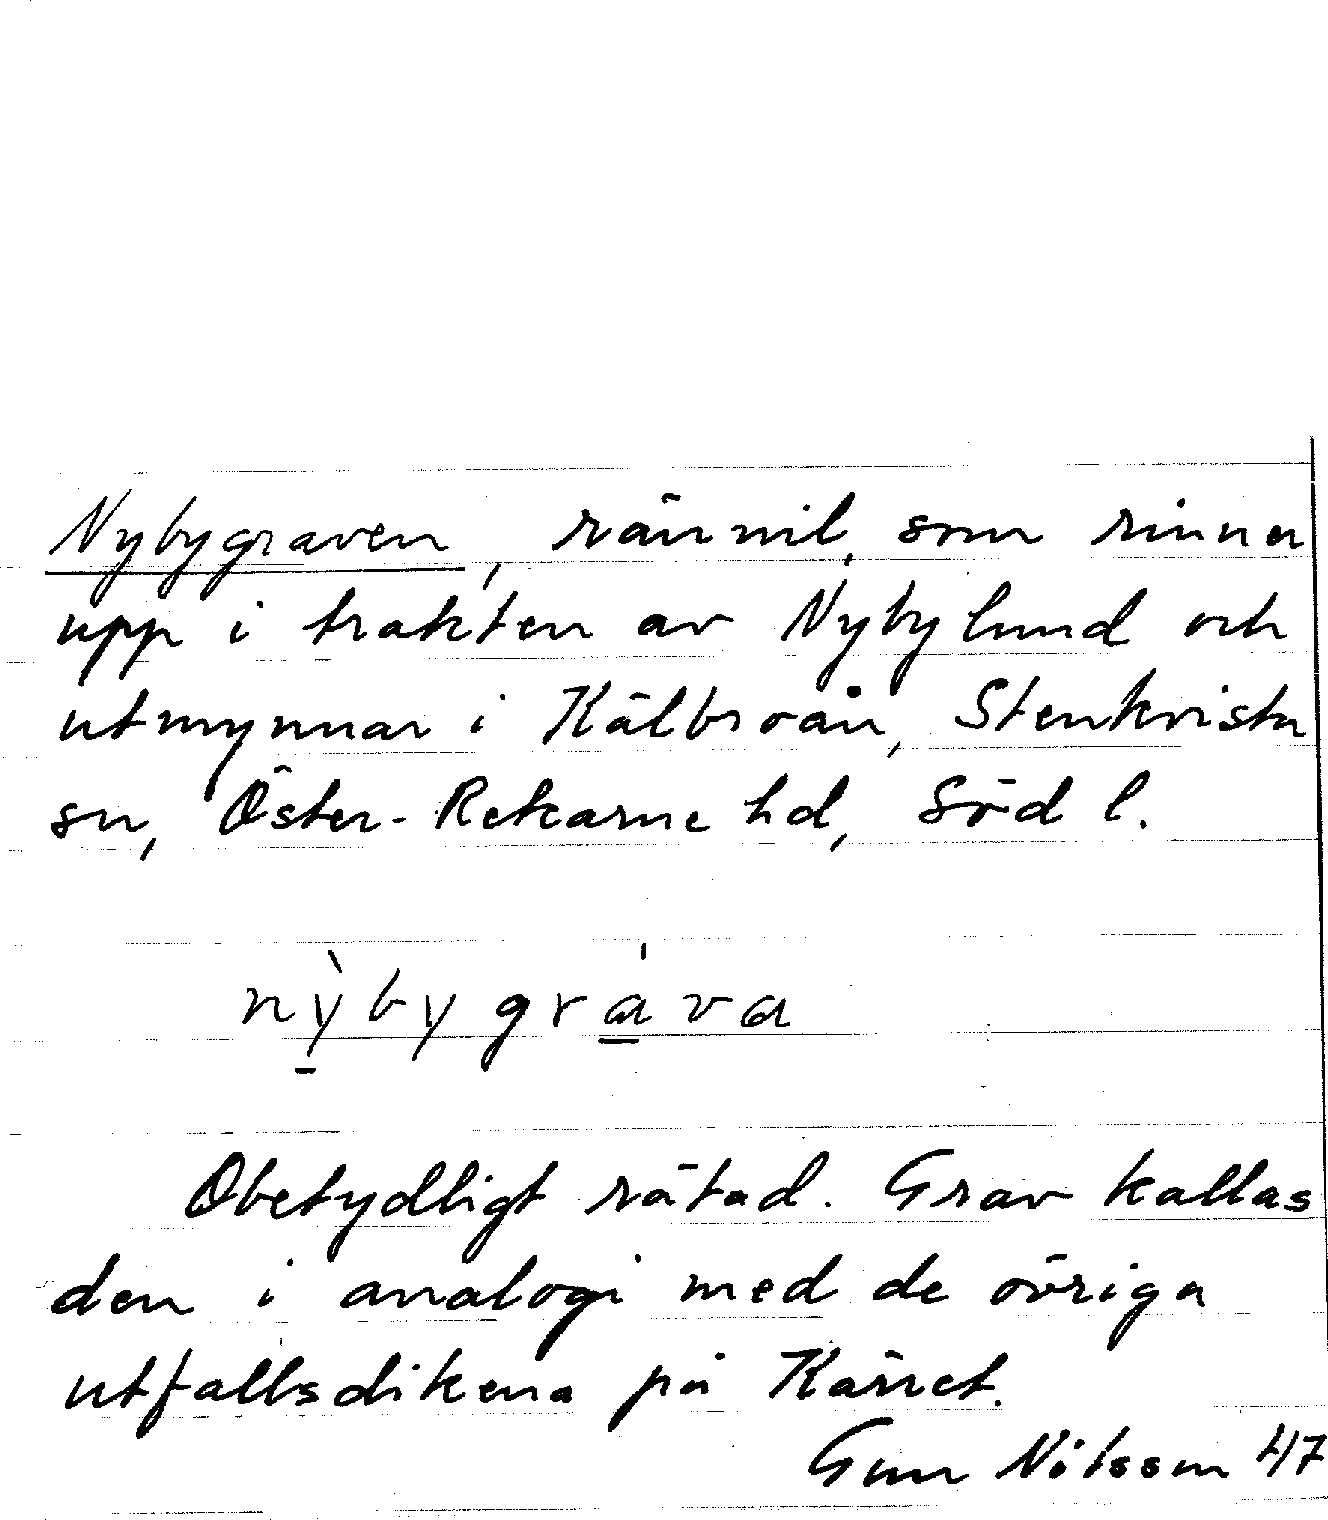 Nybygraven, rännil, som rinner
upp i trakten av Nybylund och
utmynnar i Kälbroån, Stenkvista
sn, Öster-Rekarne hd, Söd l.
nỳbygráva
Obetydligt rätad. Grav kallas
den i analogi med de övriga
utfallsdikena på Kärret.
Gun Nilsson 47